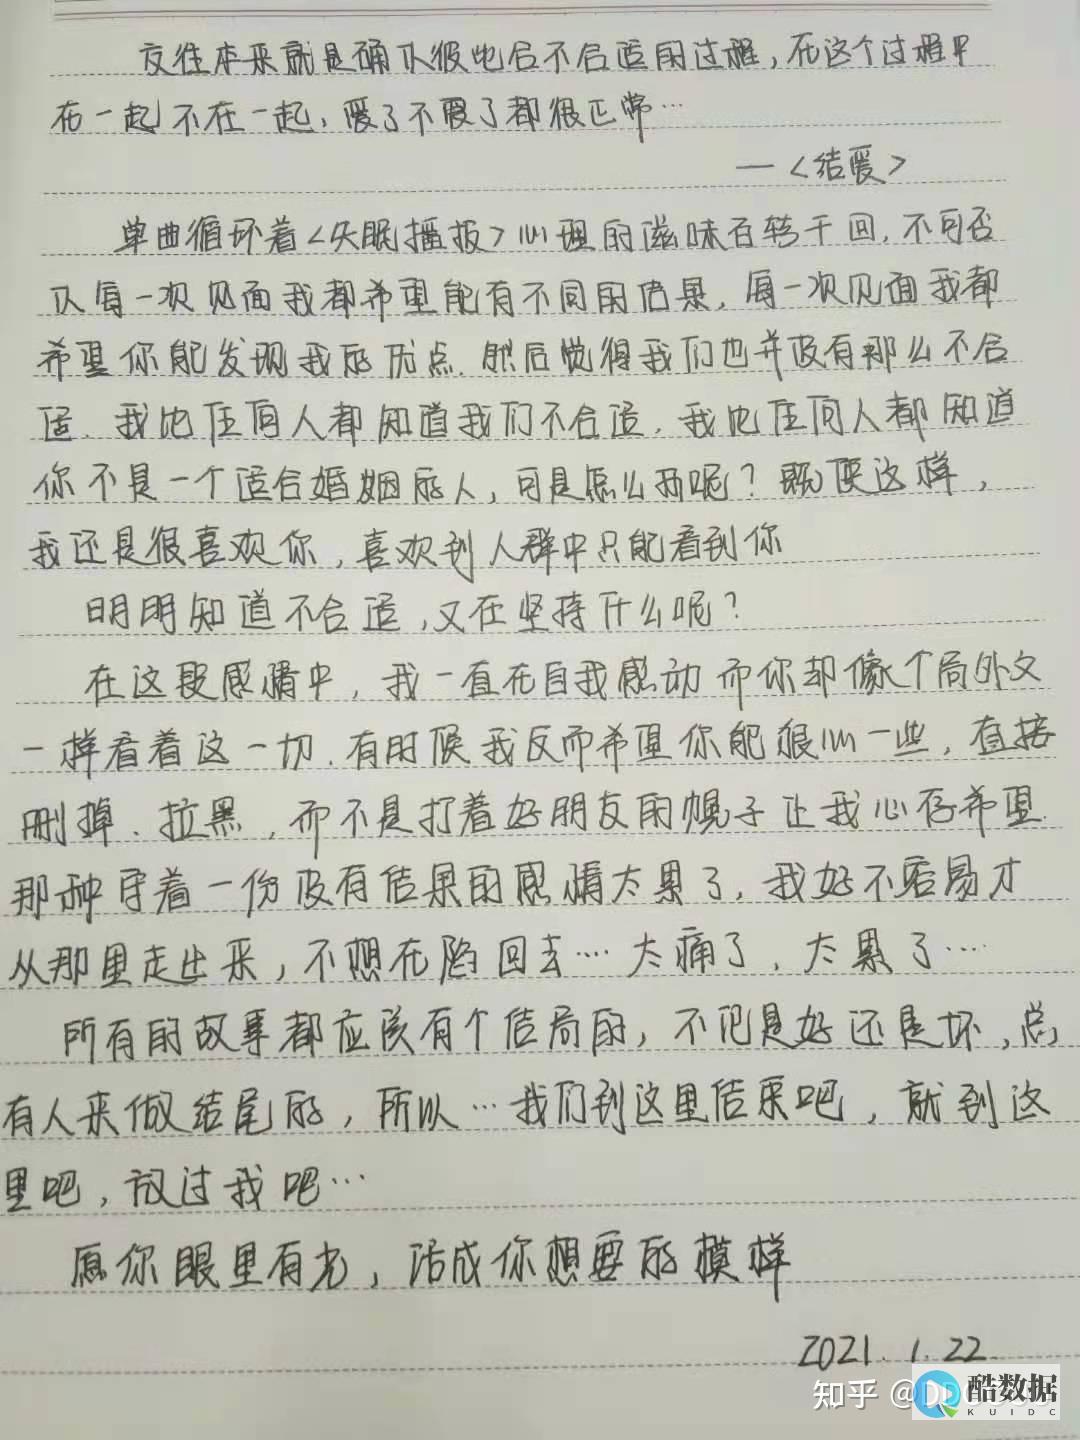 交往本来就是确认彼此合不合适的过程，在这个过程中
在一起不在一起，爱了不爱了都很正常…
—<结爱>
单曲循环着<失眠播报>心理的滋味百转千回，不可否
认每一次见面我都希望能有不同的结果，每一次见面我都
希望你能发现我的优点.然后觉得我们也并没有那么不合
适.我比任何人都知道我们不合适，我比任何人都知道
你不是一个适合婚姻的人，可是怎么办呢？既使这样，
我还是很喜欢你，喜欢到人群中只能看到你
明明知道不合适，又在坚持什么呢？
在这段感情中，我一直在自我感动而你却像个局外文
一样看着这一切.有时候我反而希望你能狠心一些，直接
删掉、拉黑，而不是打着好朋友的幌子让我心存希望.
那种守着一份没有结果的感情太累了，我好不容易才
从那里走出来，不想在陷回去…. 太痛了，太累了….
所有的故事都应该有个结局的，不论是好还是坏，总
有人来做结尾的，所以…我们到这里结束吧，就到这
里吧，放过我吧…
愿你眼里有光，活成你想要的模样
2021.1.22
知乎 @DD
酷数据
KUIDC